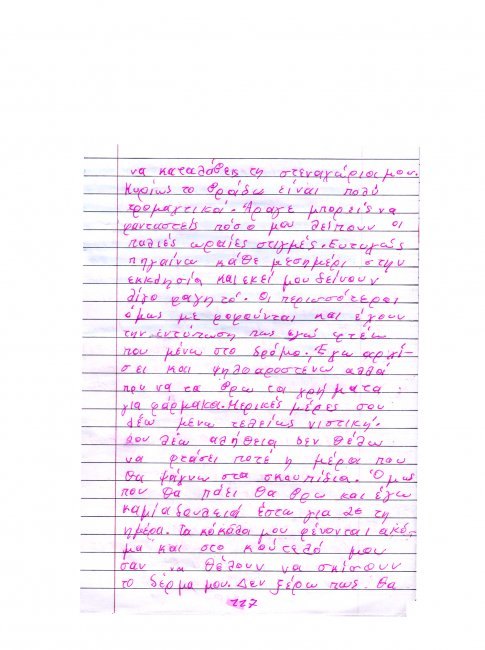 να καταλάβεις τη στεναχώρια μου.
Κυρίως το βράδυ είναι πολύ
τρομαχτικά. Άραγε μπορείς να
φανταστείς πόσο μου λείπουν οι
παλιές ωραίες στιγμές. Ευτυχώς
πηγαίνω κάθε μεσημέρι στην
εκκλησία και εκεί μου δείνουν
λίγο φαγητό. Οι περισσότεροι
όμως με φοβούνται και έχουν
την εντύπωση πως εγώ φτέω
που μένω στο δρόμο. Έχω αρχί-
σει και ψηλοαροστένω αλλά
που να τα βρω τα χρήματα
για φάρμακα. Μερικές μέρες σου
λέω μένω τελείως νιστική.
Σου λέω αλήθεια δεν θέλω
να φτάσει ποτέ η μέρα που
θα ψάχνω στα σκουπίδια. Όμως
που θα πάει θα βρω και έγω
καμία δουλειά έστω για 2ε τη
ημέρα. Τα κόκαλα μου φένονται ακό,
μα και στο κούτελό μου
σαν να θέλουν να σκίσουν
το δέρμα μου. Δεν ξέρω πως θα
117